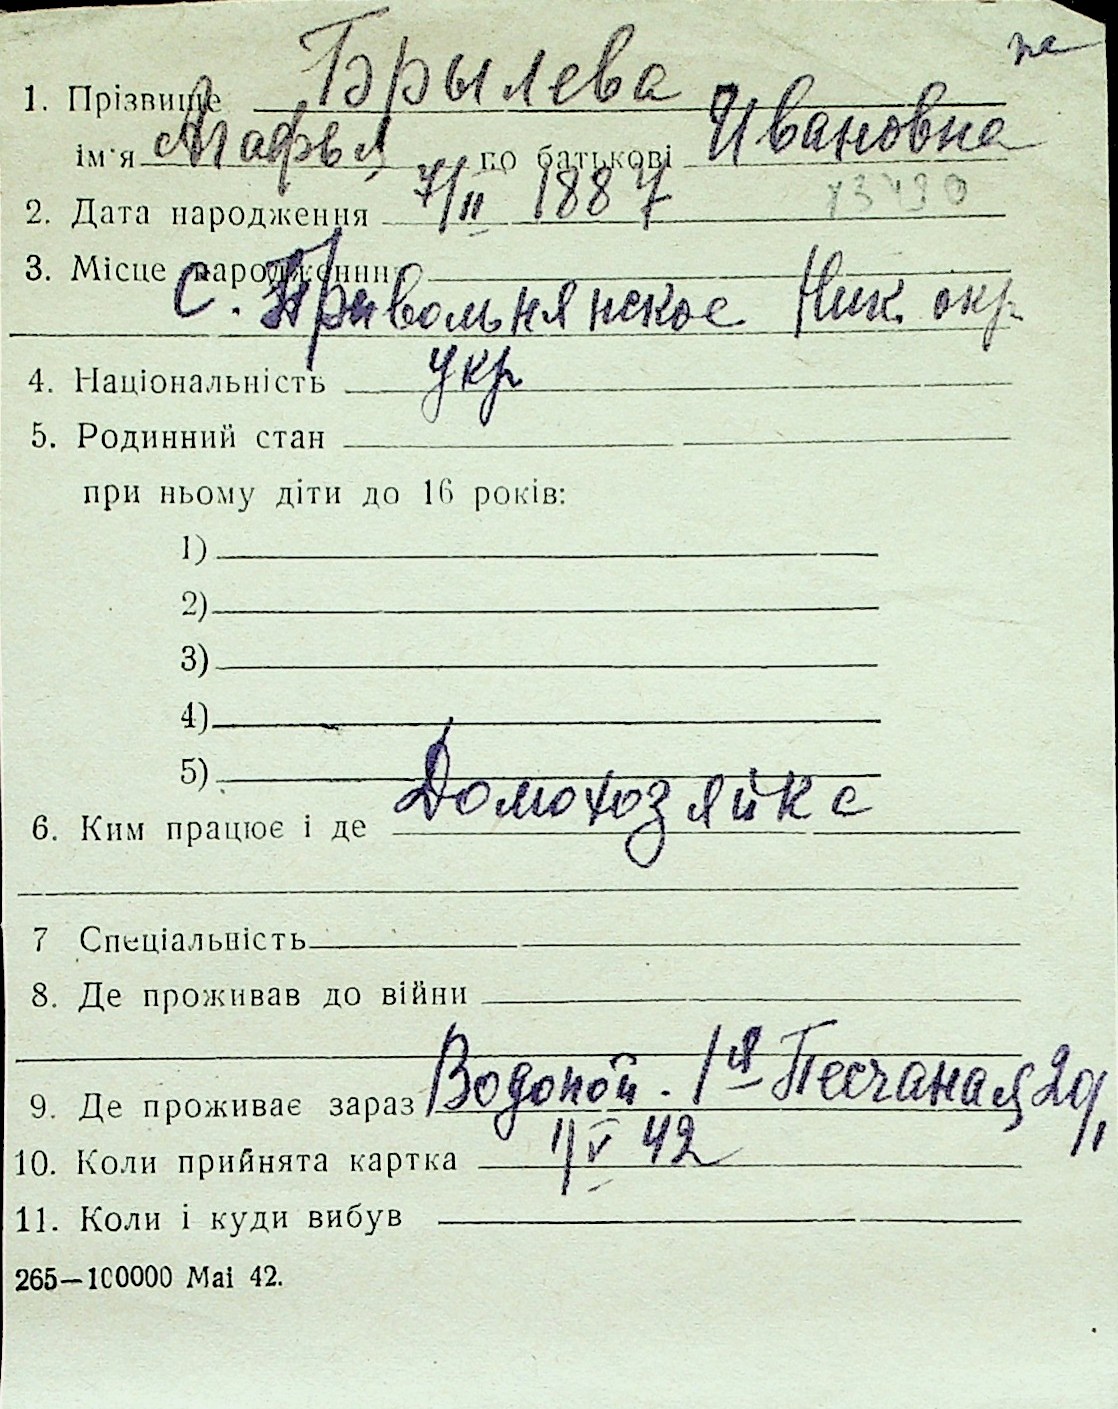 1. Прізвище Брылева
ім'я Агафья по батькові Ивановна
2. Дата народження 7/II 1887 13430
3. Місце народження
с. Привольнянское Ник. окр.
4. Національність укр
5. Родинний стан
при ньому діти до 16 років:
1)
2)
3)
4)
5)
6. Ким працює і де Домохозяйка
7 Спеціальність
8. Де проживав до війни
9. Де проживає зараз Водопой. 1я Песчаная
10. Коли прийнята картка 11/V 42
11. Коли і куди вибув
265—100000 Mai 42.